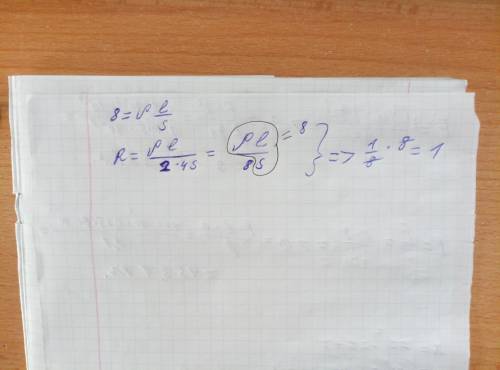 8 = ρ l/s
R = ρ l/2·4s = ρ l/8s = 8 } => 1/8 · 8 = 1